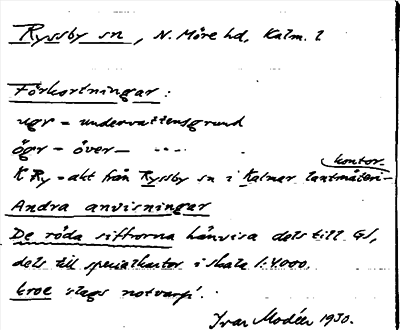 Ryssby sn, N. Möre hd, Kalm. l
Förkortningar:
ugr = undervattensgrund
ögr = över- " "
K Ry = akt från Ryssby sn i Kalmar lantmäteri-
kontor.
Andra anvisningar
De röda siffrorna hänvisa dels till GS,
dels till specialkartor i skala 1:4000.
troe slags notvarp.
Ivar Modéer 1930.